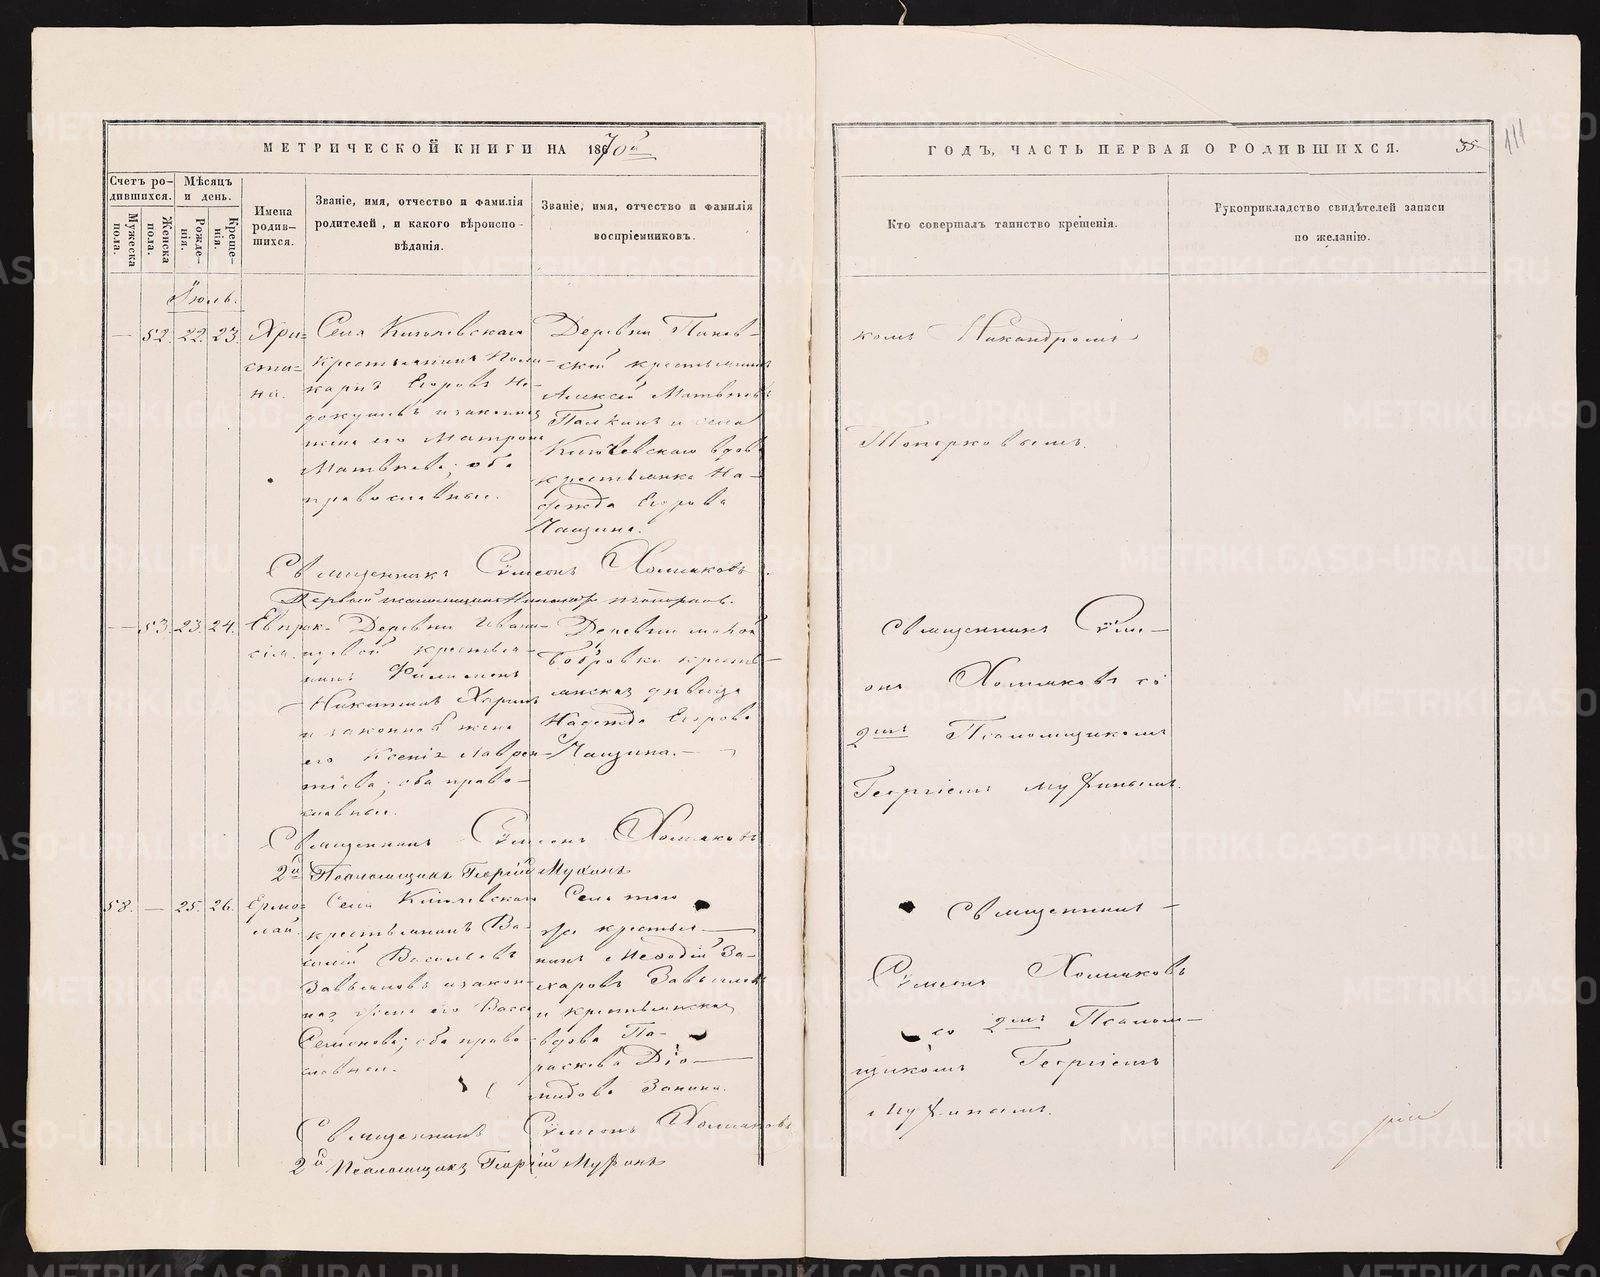 МЕТРИЧЕСКОЙ КНИГИ НА 1870й
Счетъ ро-
дившихся.
Мужеска
пола.
Женска
пола.
Мѣсяцъ
и день.
Рожде-
нія.
Креще-
нія.
Имена
родив-
шихся.
Званіе, имя, отчество и фамилія
родителей, и какого вѣроиспо-
вѣданія.
Званіе, имя, отчество и фамилія
воспріемниковъ.
Іюль.
— 52. 22. 23.
Хри-
сти-
на.
Села
крестьянинъ Поли-
карпъ Егоровъ
и законная
жена его Матрона
Матвѣева; оба
православные.
Деревни
ской крестьянинъ
Алексѣй Матвѣевъ
и села
вдова
крестьянка На-
дежда Егорова
Чащина.
Священникъ Сѵмеонъ Холмаковъ
Первый псаломщикъ Никандръ Топорковъ.
— 53. 23. 24.
Евпрак-
сія.
Деревни
крестья-
нинъ Филимонъ
Никитинъ
и законная жена
его Ксенія Лаврен-
тіева; оба право-
славные.
Деревни малой
Бобровки кресть-
янская дѣвица
Надежда Егорова
Чащина.
Священникъ Сѵмеонъ Холмаковъ
2й Псаломщикъ Георгій Мухинъ
58. — 25. 26.
Ермо-
лай.
Села
крестьянинъ Ва-
силій Васильевъ
Завьяловъ и закон-
ная жена его Васса
Семенова; оба право-
славные.
Села того
же крестья-
нинъ Меѳодій За-
харовъ Завьяловъ
и крестьянская
вдова Па-
раскева Діо-
мидова Занина.
Священникъ Сѵмеонъ Холмаковъ
2й Псаломщикъ Георгій Мухинъ
ГОДЪ, ЧАСТЬ ПЕРВАЯ О РОДИВШИХСЯ.
55.
111
Кто совершалъ таинство крещенія.
Рукоприкладство свидѣтелей записи
по желанію.
комъ Никандромъ
Топорковымъ.
Священникъ Сѵме-
онъ Холмаковъ со
2мъ Псаломщикомъ
Георгіемъ Мухинымъ.
Священникъ
Сѵмеонъ Холмаковъ
со 2мъ Псалом-
щикомъ Георгіемъ
Мухинымъ.
METRIKI.GASO-URAL.RU